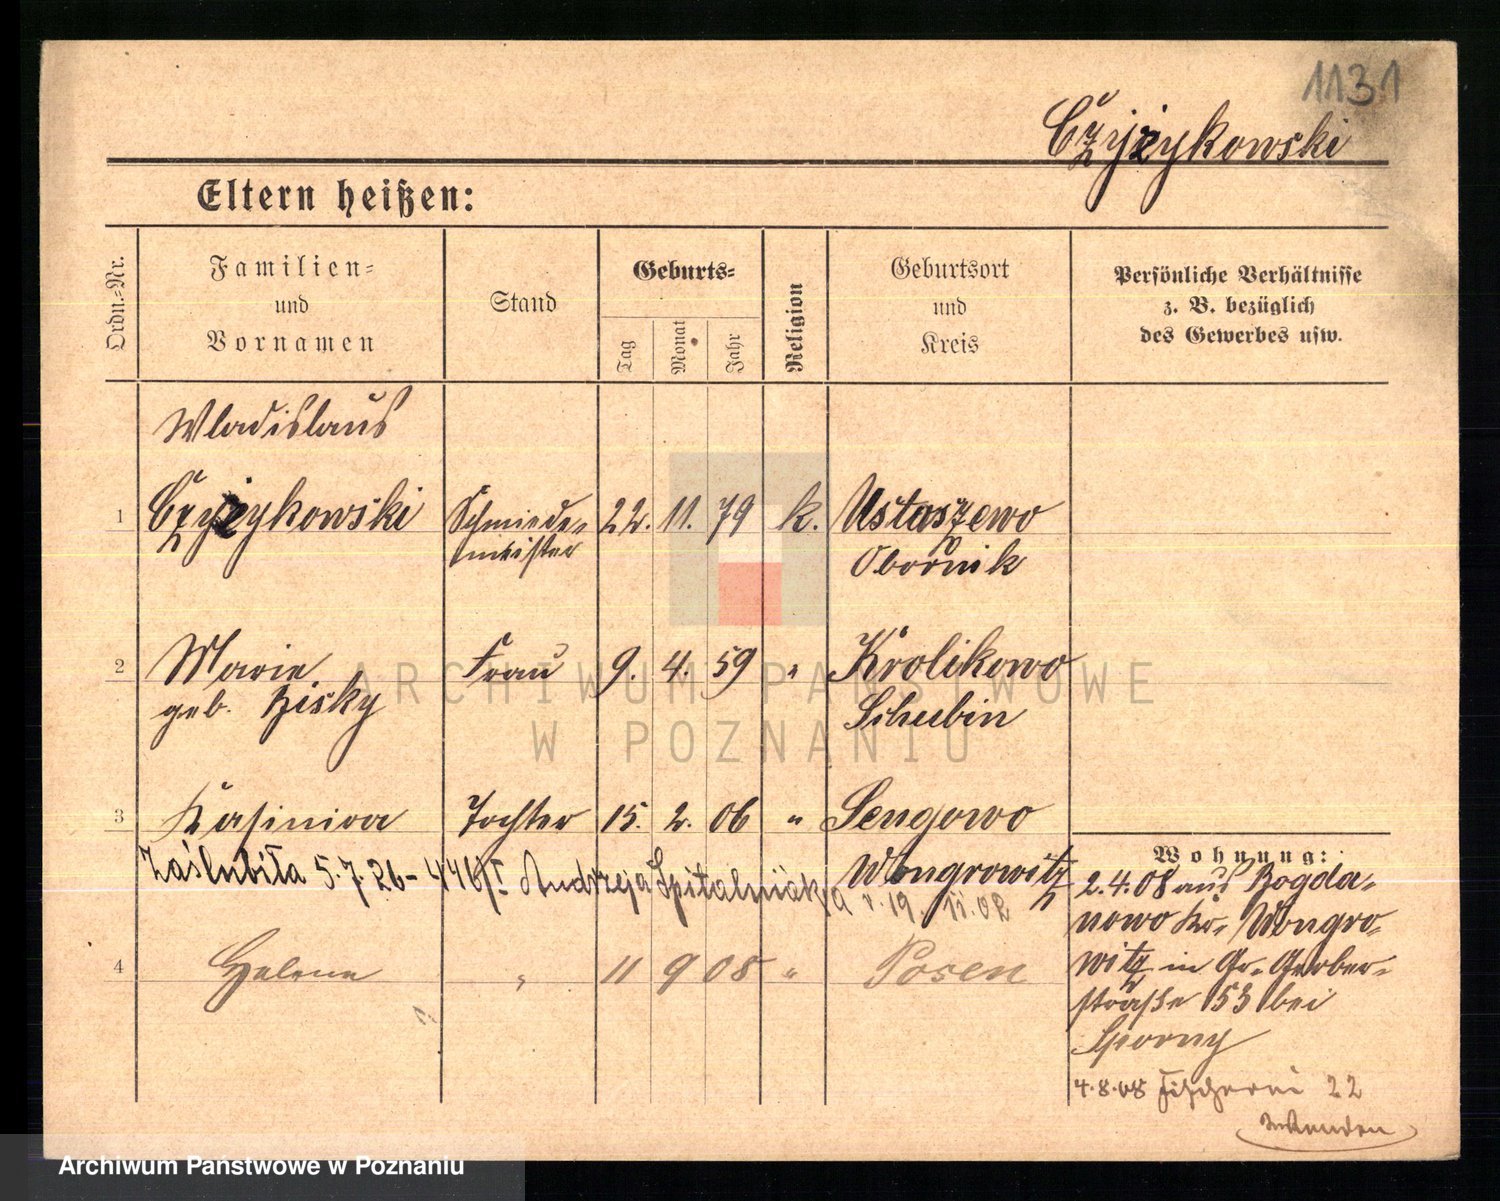 1131
Czyżykowski
Eltern heißen:
Ordn.-Nr.
Familien-
und
Vornamen
Stand
Geburts-
Tag
Monat
Jahr
Religion
Geburtsort
und
Kreis
Persönliche Verhältnisse
z. B. bezüglich
des Gewerbes usw.
Wladislaus
1 Czyżykowski Schmiede- 22. 11. 79 k. Ustaszewo
meister Obornik
2 Marie Frau 9. 4. 59 " Krolikowo
geb. Zisky Schubin
3 Kasimira Tochter 15. 2. 06 " Sengowo
Wongrowitz
Zaślubiła 5.7.26 - 446/I Andrzeja Spitalniaka
r. 19. 11. 02
4 Helene " 11 9 08 " Posen
Wohnung:
2.4.08 aus Bogda-
nowo Kr. Wongro-
witz in Gr. Gerber-
straße 53 bei
Sporny
4.8.08 Fischerei 22
ARCHIWUM PAŃSTWOWE
W POZNANIU
Archiwum Państwowe w Poznaniu